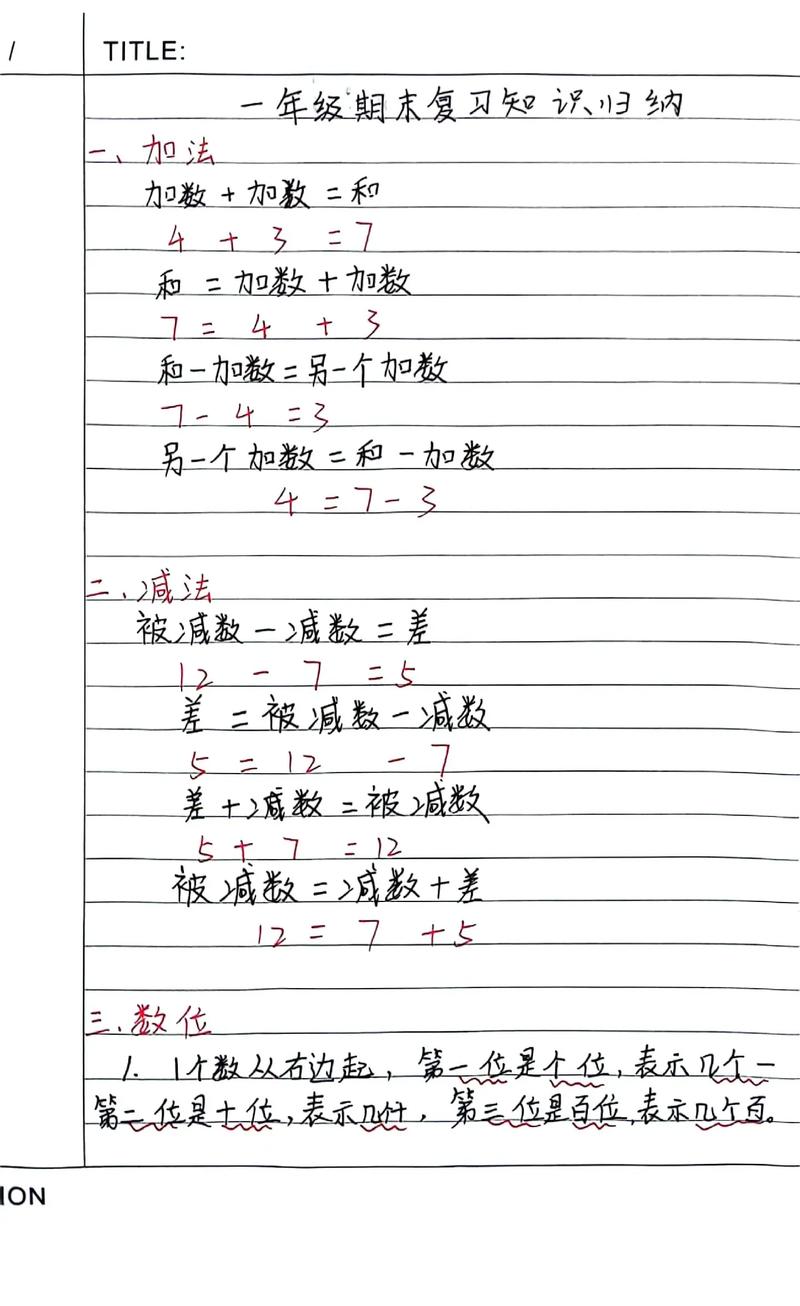 /
TITLE:
一年级期末复习知识归纳
一、加法
加数+加数=和
4+3=7
和=加数+加数
7=4+3
和-加数=另一个加数
7-4=3
另一个加数=和-加数
4=7-3
二、减法
被减数-减数=差
12-7=5
差=被减数-减数
5=12-7
差+减数=被减数
5+7=12
被减数=减数+差
12=7+5
三、数位
1. 1个数从右边起,第一位是个位,表示几个一
第二位是十位,表示几个十,第三位是百位,表示几个百。
ION